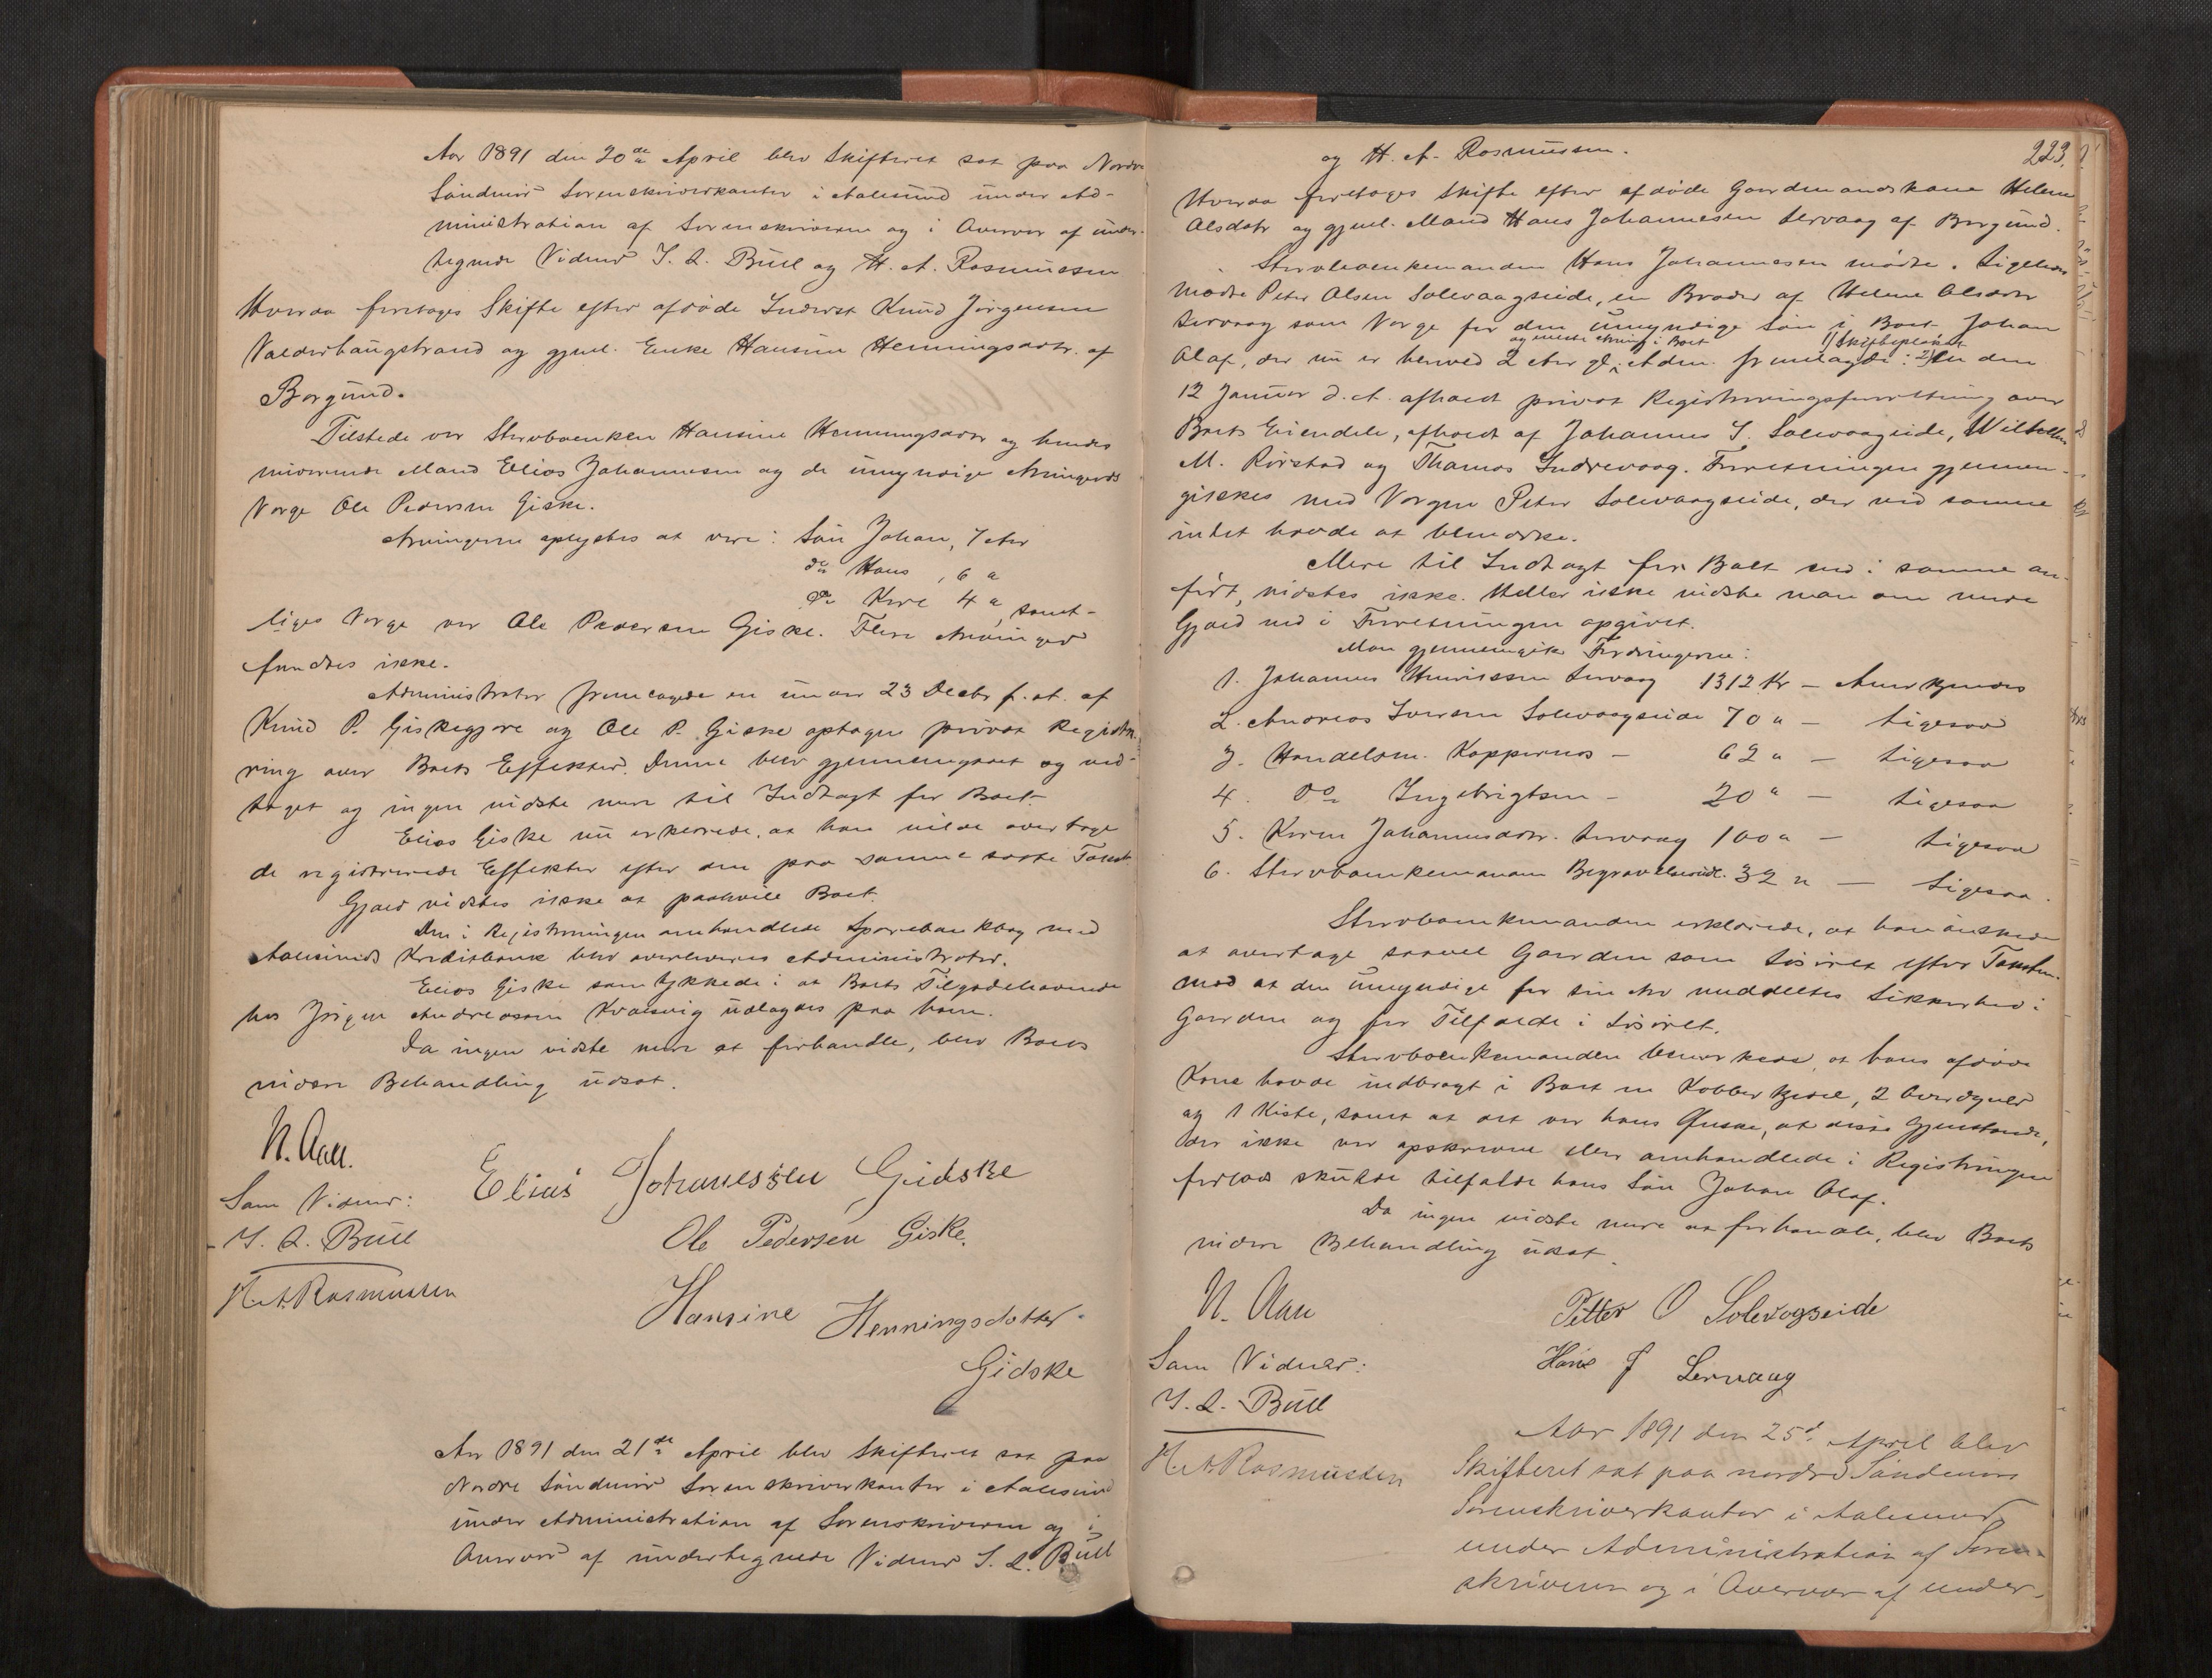 Aar 1891 den 20de April blev Skifteret sat paa Nordre
Söndmör Sorenskriverkontor i Aalesund under Ad-
ministration af Sorenskriveren og i Overvær af under-
tegnede Vidner I. L. Büll og H. A. Rasmussen
Hvorda foretoges Skifte efter afdöde Inderst Knud Jörgensen
Valderhaugstrand og gjenl. Enke Hansine Henningsdatr. af
Borgund.
Tilstede var Stervboenken Hansine Henningsdatr og hendes
nuværende Mand Elias Johannesen og de umyndige Arvingers
Værge Ole Pedersen Giske.
Arvingerne oplystes at være: Sön Johan, 7 Aar
do Hans, 6 "
do Kore 4 ", samt-
liges Værge var Ole Pedersen Giske. Flere Arvinger
fandtes ikke.
Administrator fremlagde en under 23 Decbr f. A. af
Knud P. Giskegjære og Ole P. Giske optagen privat Registre-
ring over Boets Effekter. Denne blev gjennemgaaet og ved-
taget og ingen vidste mere til Indtægt for Boet.
Elias Giske nu erklærede, at han vilde overtage
de registrerede Effekter efter den paa samme satte Taxt.
Gjæld vidstes ikke at paahvile Boet.
Den i Registreringen omhandlede Sparebankbog med
Aalesunds Kreditbank blev overleveret Administrator.
Elias Giske samtykkede i at Boets Tilgodehavende
hos Jörgen Andreassen Kvalsvig udlagdes paa ham.
Da ingen vidste mere at forhandle, blev Boets
videre Behandling udsat.
N. Aall.
Elias Johanessen Gidske
Som Vidner:
I. L. Büll
Ole Pedersen Giske.
H. A. Rasmussen
Hansine Henningsdatter
Gidske
Aar 1891 den 21de April blev Skifteret sat paa
Nordre Söndmör Sorenskriverkontor i Aalesund
under Administration af Sorenskriveren og i
Overvær af undertegnede Vidner I. L. Büll
223.
og H. A. Rasmussen.
Hvorda foretoges Skifte efter afdöde Gaardmandskone Helene
Olsdatr og gjenl. Mand Hans Johannesen Lervaag af Borgund.
Stervboenkemanden Hans Johannesen mödte. Ligeledes
mödte Peter Olsen Solevaagseide, en Broder af Helene Olsdatr
Lervaag som Værge for den umyndige Sön i Boet Johan
og eneste Arving i Boet 1) Skifteplakat
Olaf, der nu er henved 2 Aar gl. Adm. fremlagde: 2) En den
12 Januar d. A. afholdt privat Registreringsforretning over
Boets Eiendele, afholdt af Johannes I. Solevaagseide, Wilhelm
M. Rörstad og Thomas Indrevaag. Forretningen gjennem-
gikkes med Værgen Peter Solevaagseide, der ved samme
intet havde at bemærke.
Mere til Indtægt for Boet end i samme an-
fört, vidstes ikke. Heller ikke vidste man om mere
Gjæld end i Forretningen opgivet.
Man gjennemgik Fordringerne:
1. Johannes Henriksen Lervaag 1312 Kr – Anerkjendes
2. Andreas Iversen Solevaagseide 70 " – Ligesaa
3. Handelsm. Koppernæs – 62 " – Ligesaa
4. do Ingebrigtsen – 20 " – Ligesaa
5. Karen Johannesdatr. Lervaag 100 " – Ligesaa
6. Stervboenkemanden Begravelsesudl. 32 " – Ligesaa.
Stervboenkemanden erklærede, at han önskede
at overtage saavel Gaarden som Lösöret efter Taxten
mod at den umyndige for sin Arv meddeltes Sikkerhed i
Gaarden og for Tilfælde i Lösöret.
Stervboenkemanden bemærkede, at hans afdöde
Kone havde indbragt i Boet en Kobberkjedel, 2 Overdyner
og 1 Kiste, samt at det var hans Önske, at disse Gjenstande,
der ikke var opskrevne eller omhandlede i Registreringen
forlods skulde tilfalde hans Sön Johan Olaf.
Da ingen vidste mere at forhandle, blev Boets
videre Behandling udsat.
N. Aall
Petter O Solevogseide
Som Vidner:
Hans J Lervaag
I. L. Büll
H. A. Rasmussen
Aar 1891 den 25d. April blev
Skifteret sat paa nordre Söndmörs
Sorenskriverkontor i Aalesund
under Administration af Soren-
skriveren og i Overvær af under-